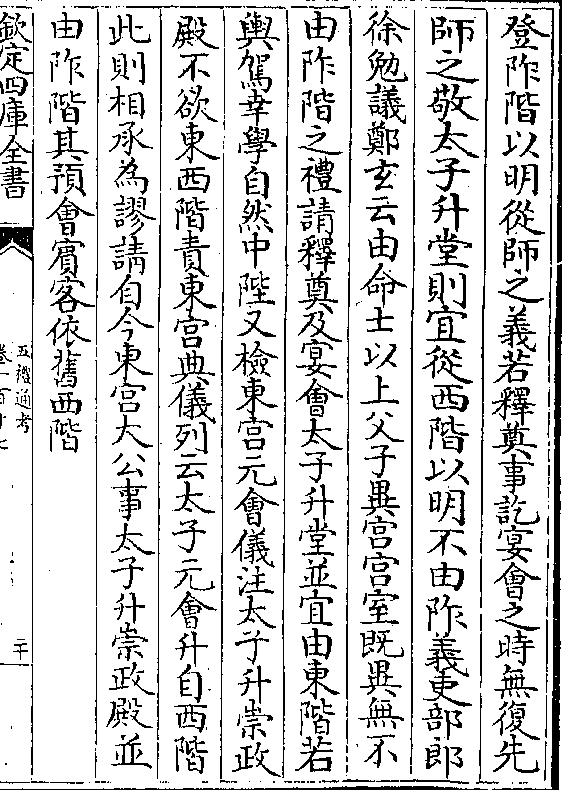 登阼階以明從師之義若釋奠事訖宴會之時無復先
師之敬太子升堂則宜從西階以明不由阼義吏部郎
徐勉議鄭玄云由命士以上父子異宮宮室既異無不
由阼階之禮請釋奠及宴會太子升堂並宜由東階若
輿駕幸學自然中陛又檢東宮元會儀注太子升崇政
殿不欲東西階責東宮典儀列云太子元會升自西階
此則相承為謬請自今東宮大公事太子升崇政殿並
由阼階其預會賓客依舊西階
欽定四庫全書
五禮通考
卷一百十七
二十